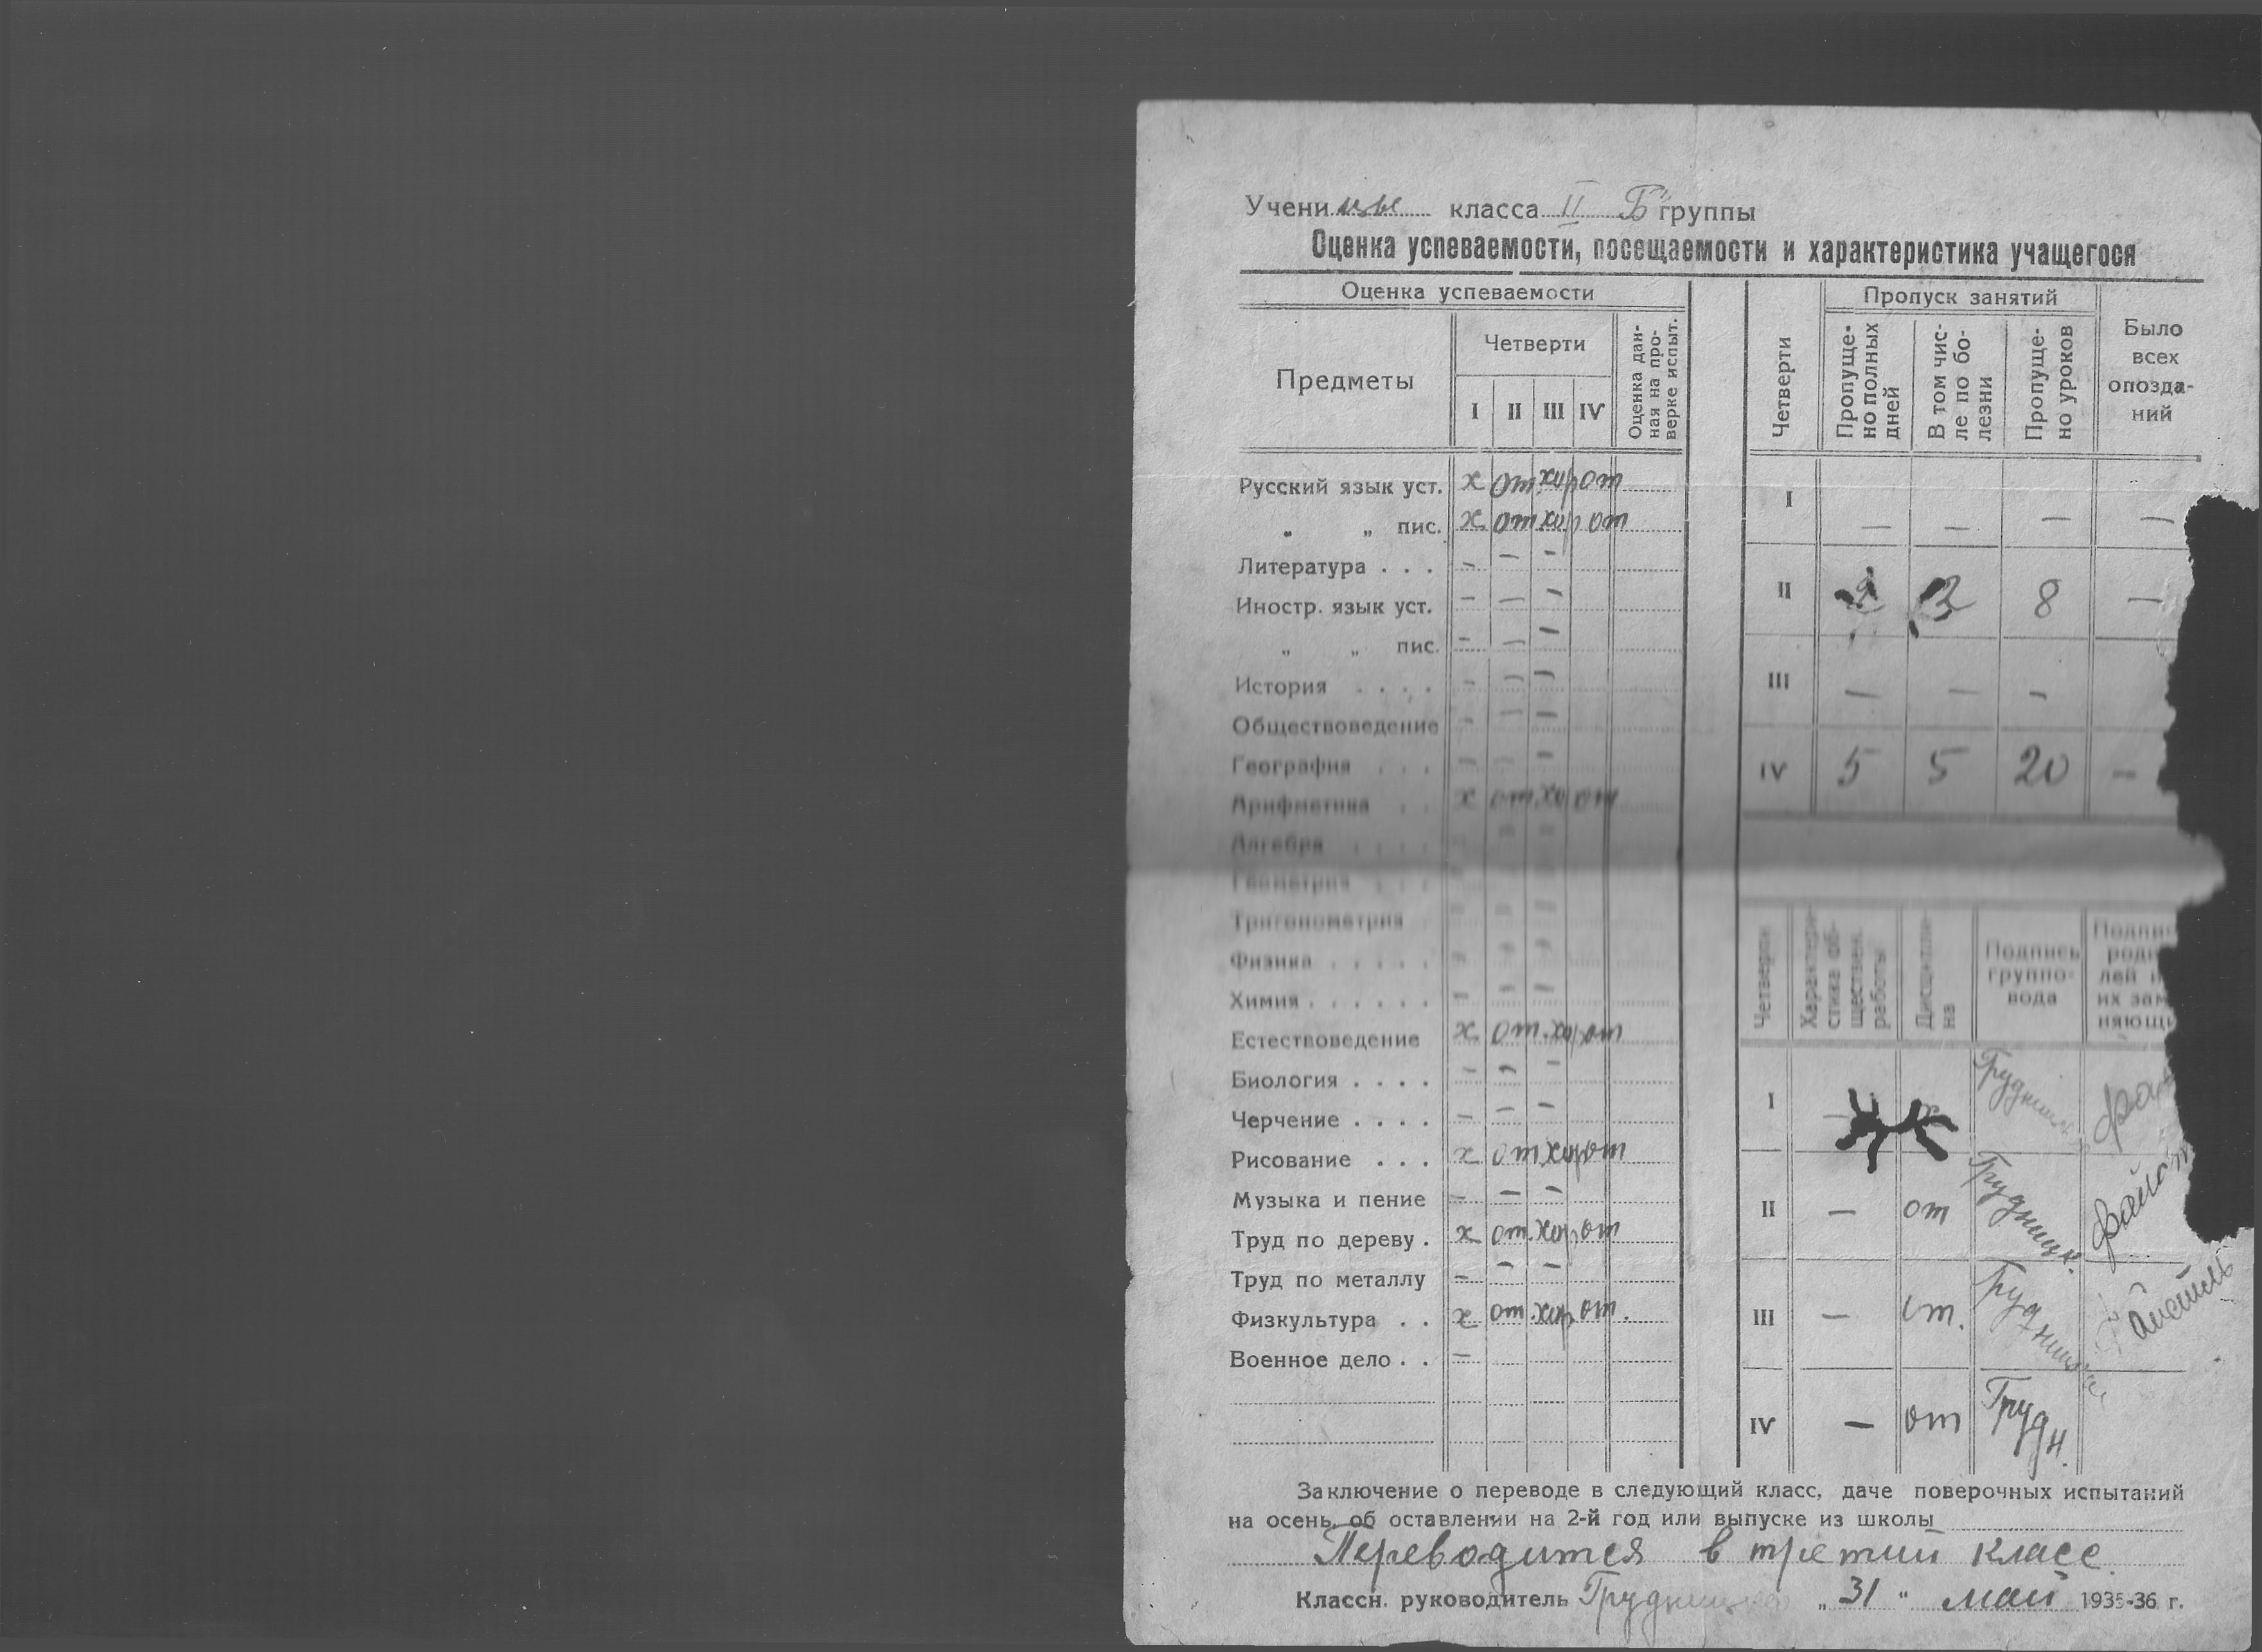 Ученицы класса II "Б" группы
Оценка успеваемости, посещаемости и характеристика учащегося
Оценка успеваемости
Предметы
Четверти
I II III IV
Оценка дан-
ная на про-
верке испыт.
Русский язык уст. х от. хор от
„ „ пис. х от хор от
Литература . . . – – –
Иностр. язык уст. – – –
„ „ пис. – – –
История . . . . – – –
Обществоведение – – –
География . . . – – –
Арифметика . . х от хор от
Алгебра . . . . – –
Геометрия . . . – – –
Тригонометрия – – –
Физика . . . . . – – –
Химия . . . . . . – – –
Естествоведение х от. хор от
Биология . . . . – – –
Черчение . . . . – – –
Рисование . . . х от хор от
Музыка и пение – – –
Труд по дереву . х от. хор от
Труд по металлу – – –
Физкультура . . х от. хор от.
Военное дело . . –
Четверти
Пропуск занятий
Пропуще-
но полных
дней
В том чис-
ле по бо-
лезни
Пропуще-
но уроков
Было
всех
опозда-
ний
I – – – –
II 2 8 –
III – – –
IV 5 5 20 –
Четверти
Характери-
стика об-
ществен.
работы
Дисципли-
на
Подпись
группо-
вода
Подпи
роди
лей и
их зам
няющи
I
II – от
III – от.
IV – от Трудн.
Заключение о переводе в следующий класс, даче поверочных испытаний
на осень, об оставлении на 2-й год или выпуске из школы
Переводится в третий класс
Классн. руководитель „31“ май 1935-36 г.